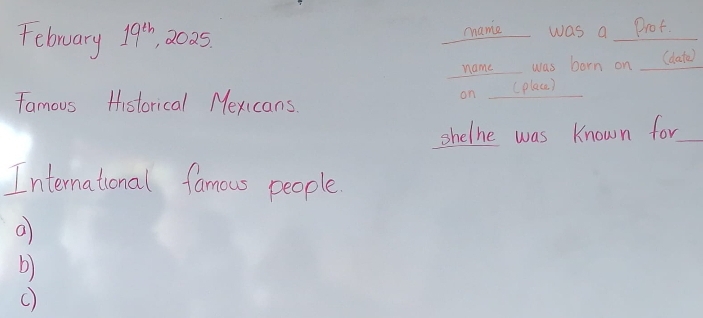 February 19th, 2025.
Famous Historical Mexicans.
International famous people.
a)
b)
c)
name was a Prof.
name was born on (date)
on (place)
she/he was known for